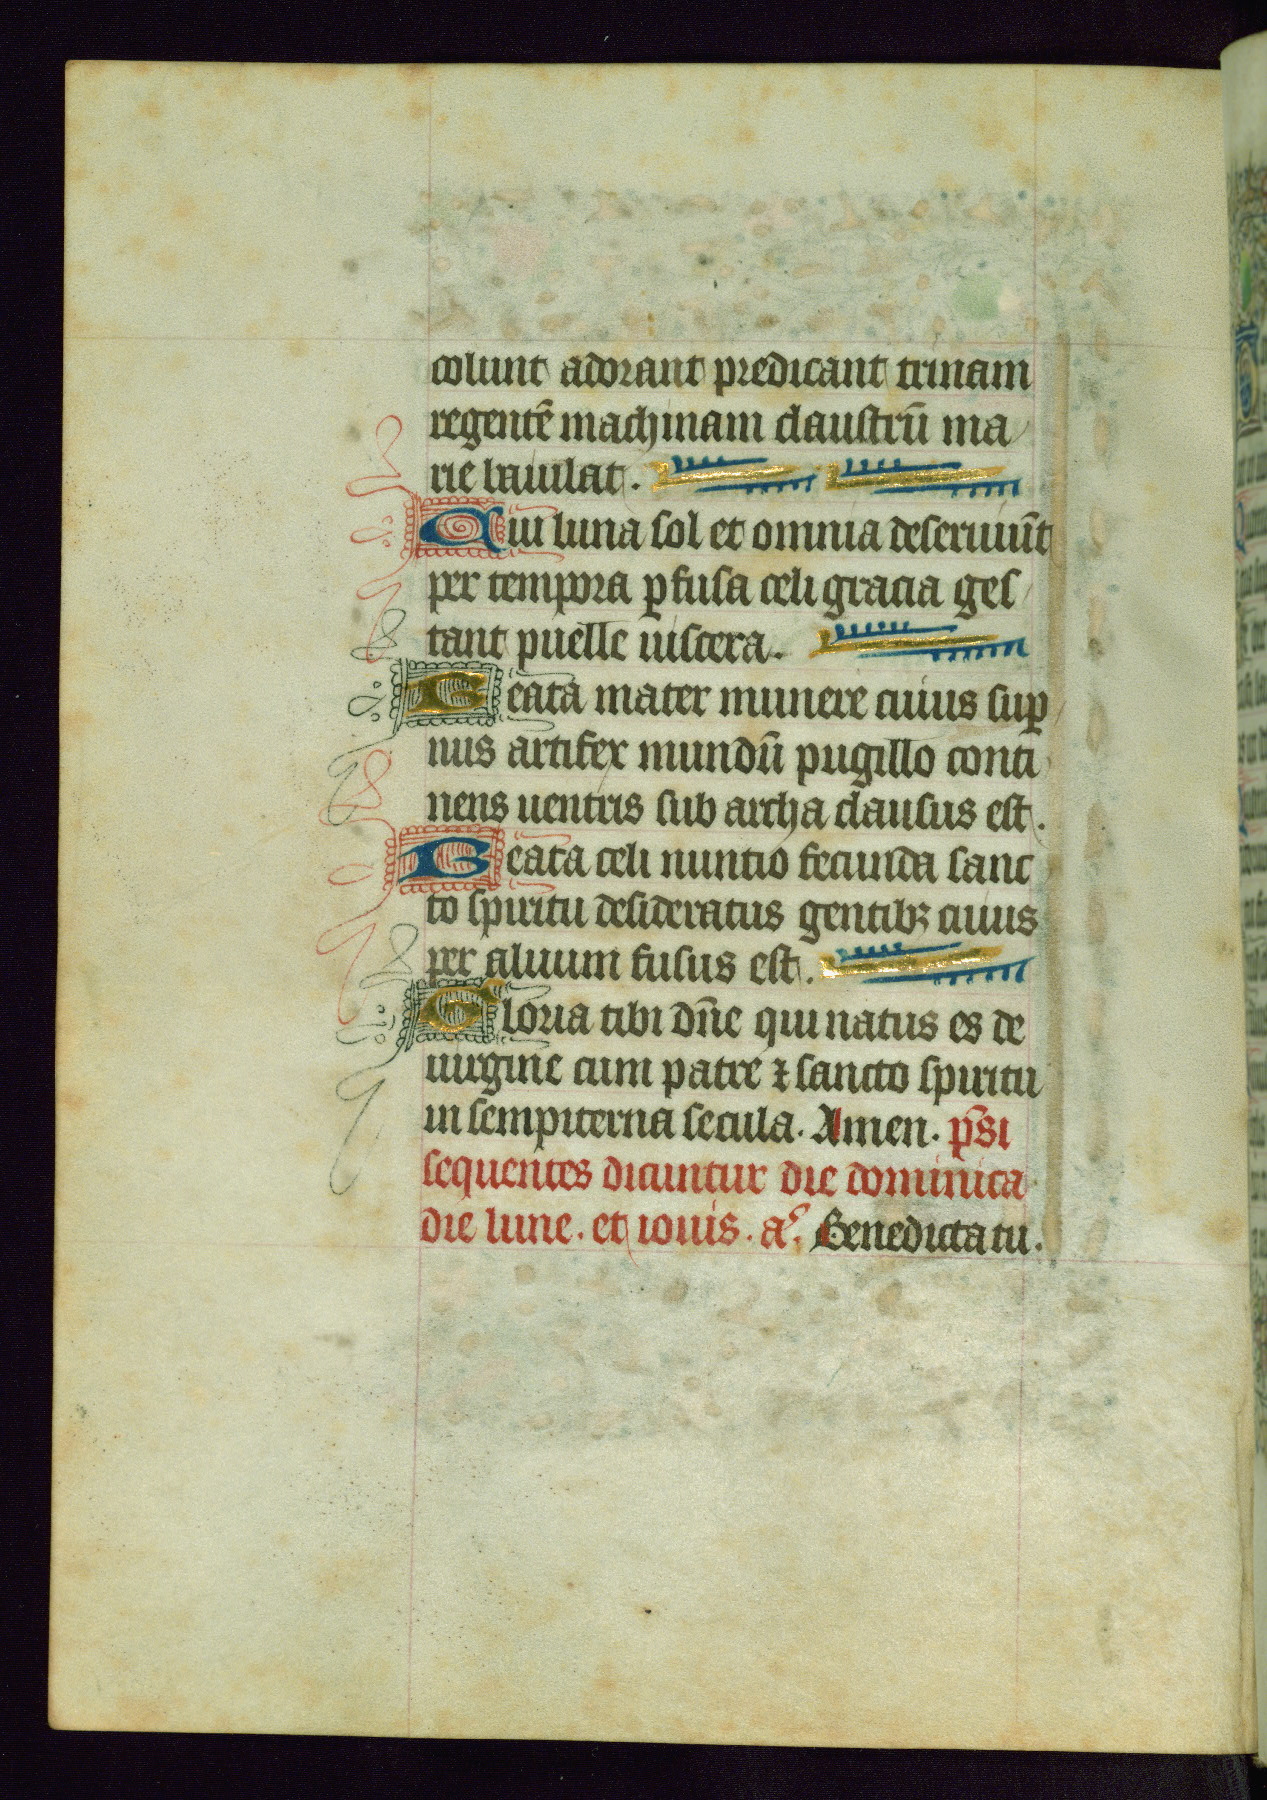 colunt adorant predicant trinam
regentē machinam claustrū ma
rie baiulat.
Cui luna sol et omnia deseruiūt
per tempora ꝑfusa celi gracia ges
tant puelle uiscera.
Beata mater munere cuius suꝑ
nus artifex mundū pugillo conti
nens uentris sub archa clausus est.
Beata celi nuntio fecunda sanc
to spiritu desideratus gentibꝫ cuius
per aluum fusus est.
Gloria tibi dn̄e qui natus es de
uirgine cum patre ⁊ sancto spiritu
in sempiterna secula. Amen. p̄si
sequentes dicuntur die dominica
die lune. et iouis. a͛. Benedicta tu.